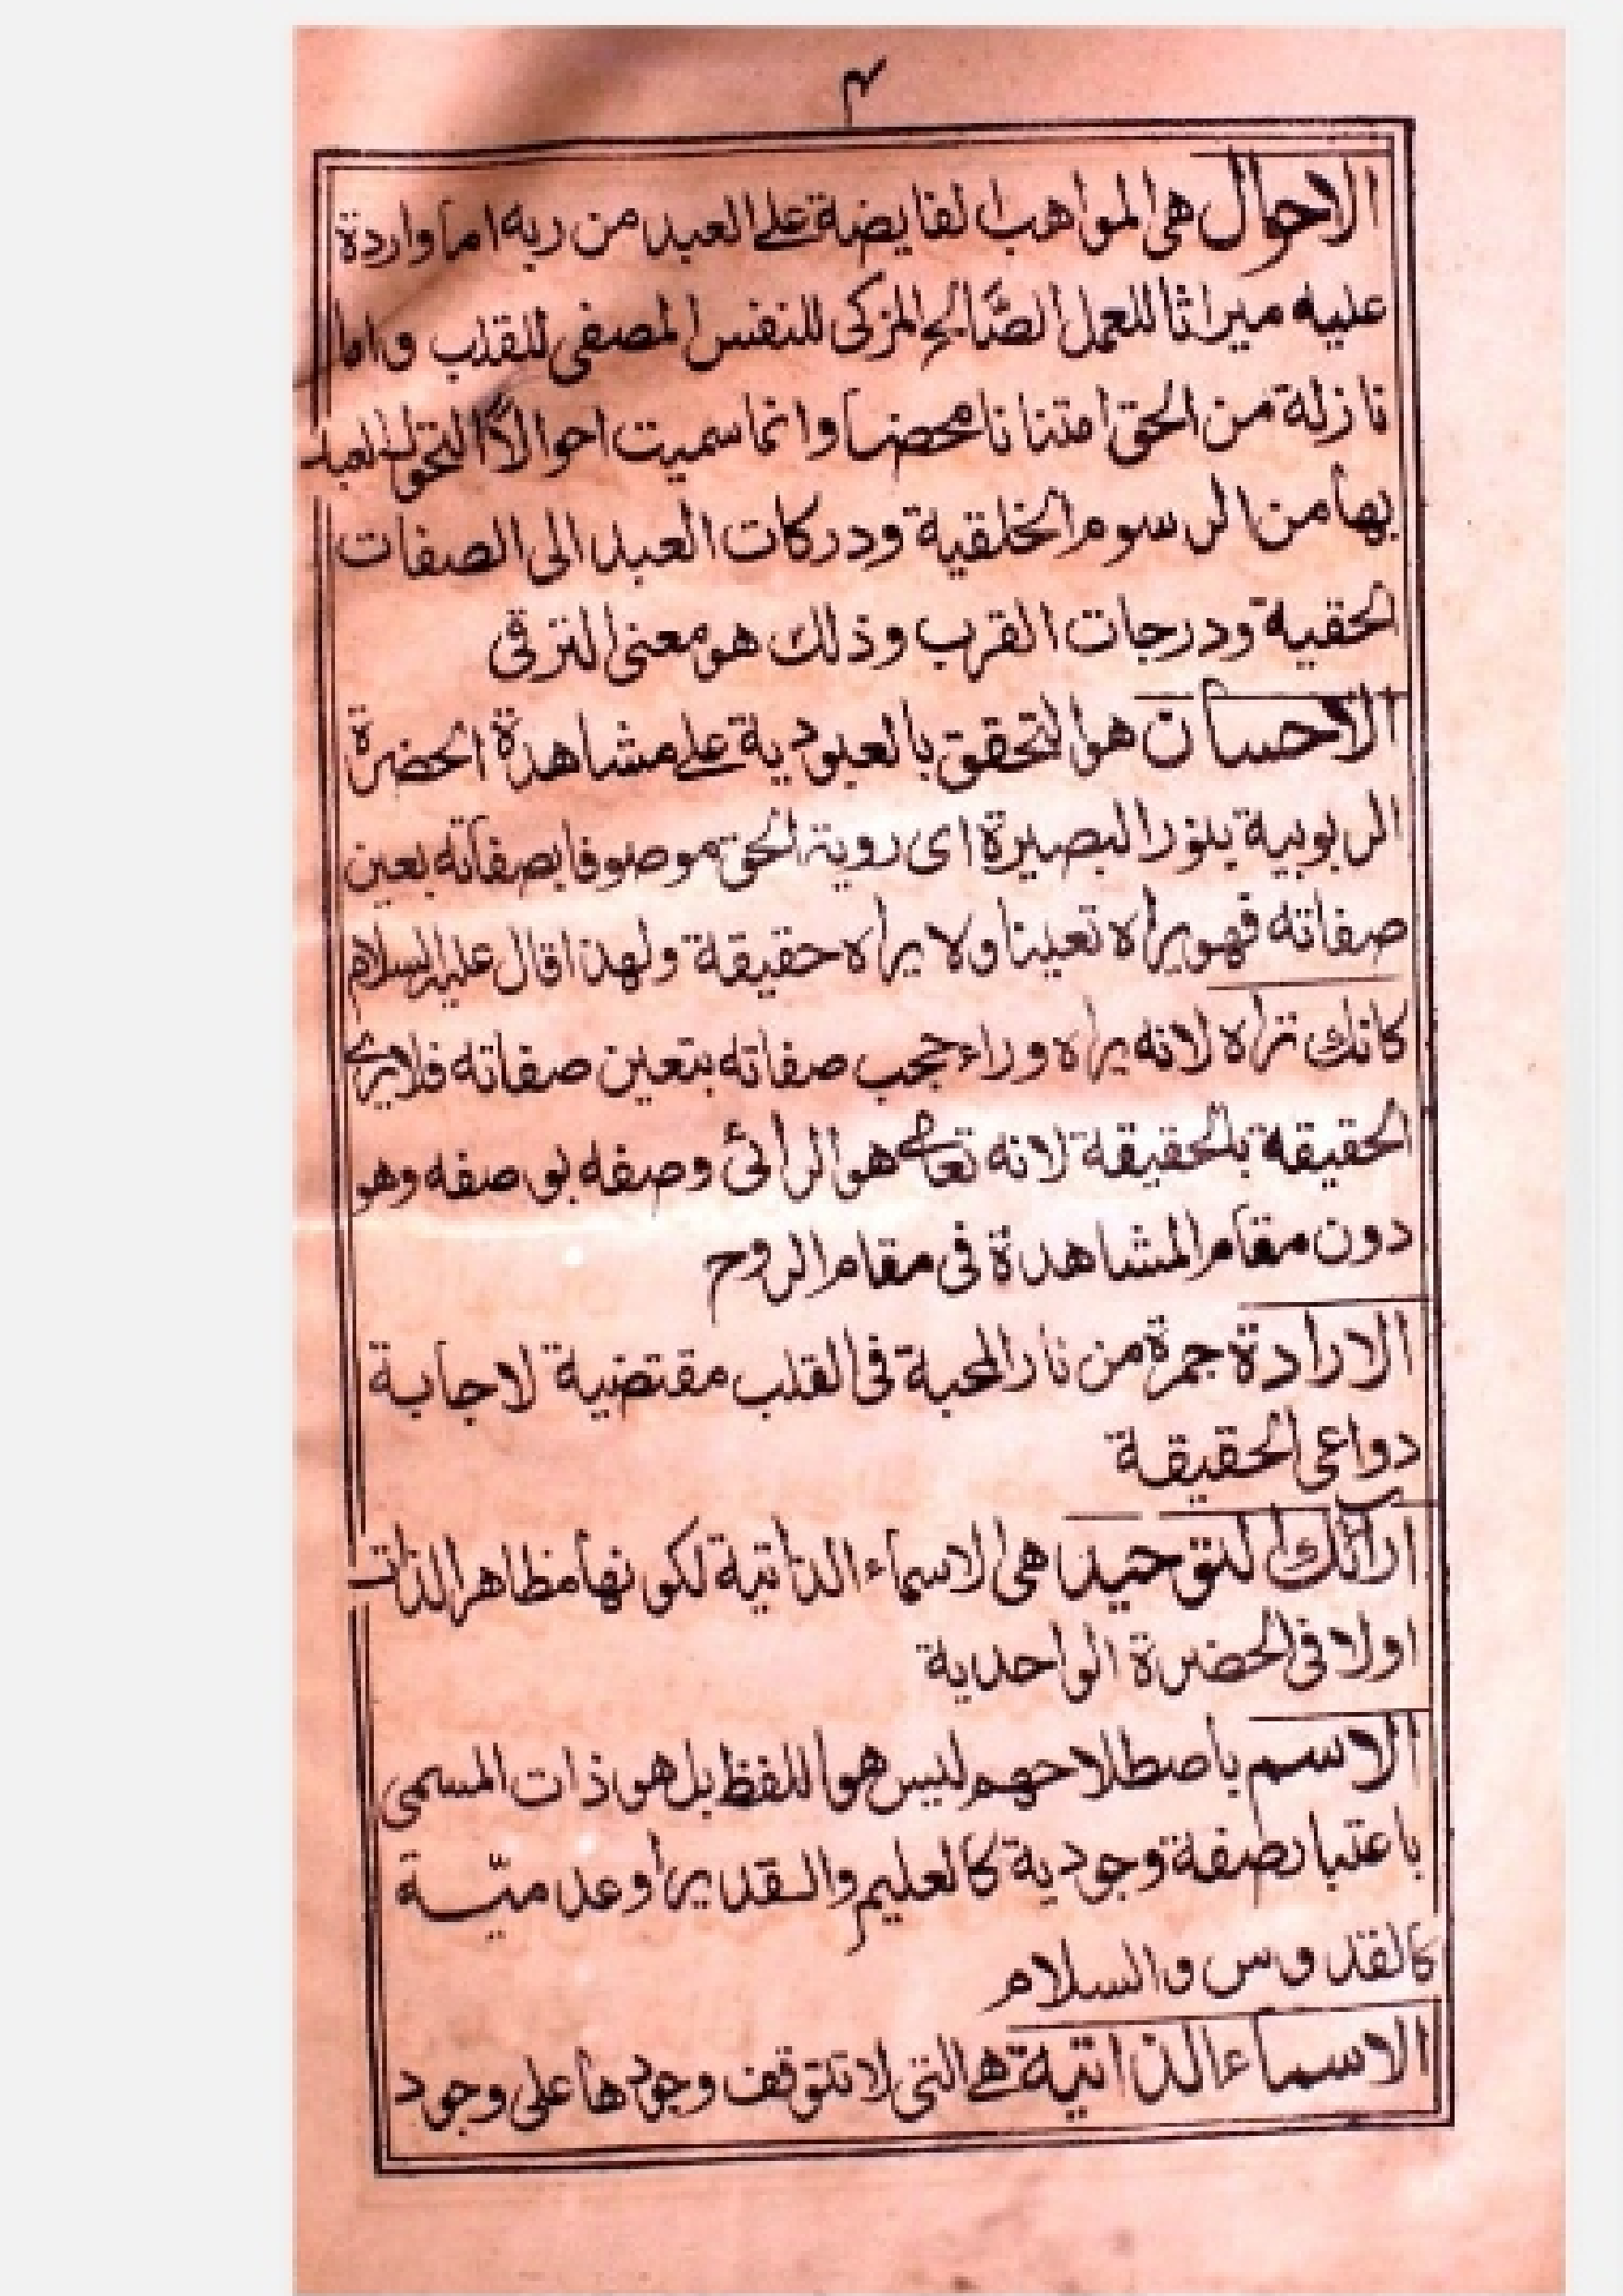 ۴
الاحوال هی المواهب الفايضة علے العبد من ربه اما واردة
عليه ميراثا للعمل الصَّالح المزکی للنفس المصفی للقلب واما
نازلة من الحق امتنانا محضا وانما سميت احوالاً التحول العبد
بها من الرسوم الخلقية ودرکات العبد الی الصفات
الحقية ودرجات القرب وذلك هو معنی الترقی
الاحسان هو التحقق بالعبودية علے مشاهدة الحضرة
الربوبية بنور البصيرة ای روية الحق موصوفا بصفاته بعين
صفاته فهو يراه تعينا ولا يراه حقيقة ولهذا قال عليه السلام
کانك تراه لانه يراه وراء حجب صفاته بتعين صفاته فلا يرے
الحقيقة بالحقيقة لانه تعالے هو الرائی وصفه بوصفه وهو
دون مقام المشاهدة فی مقام الروح
الارادة جمرة من نار المحبة فی القلب مقتضية لاجابة
دواعی الحقيقة
ارائك التوحيد هی الاسماء الذاتية لکونها مظاهر الذات
اولا فی الحضرة الواحدية
الاسم باصطلاحهم ليس هو اللفظ بل هو ذات المسمی
باعتبار صفة وجودية کالعليم والقدير او عدميّة
کالقدوس والسلام
الاسماء الذاتية هے التی لا تتوقف وجودها علی وجود